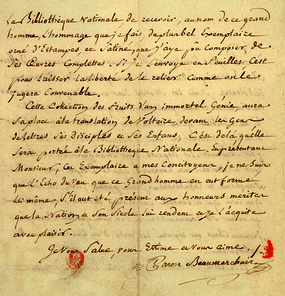 La Bibliothèque Nationale de recevoir, au nom de ce grand
homme, l'hommage que je fais du plus bel Exemplaire
orné d'Estampes, et Satiné que j'aye pu Composer, de
Ses Œuvres Complettes. Si je l'envoye en feuilles C'est
pour laisser la liberté de le relier Comme on le
jugera Convenable.
Cette Collection des fruits d'un immortel Genie aura
Sa place à la translation de Voltaire, devant les Gens
de lettres Ses disciples et Ses Enfans, C'est de là qu'elle
Sera portée à la Bibliothèque Nationale. En présentant
Monsieur, Cet Exemplaire à mes Concitoyens, je ne Suis
que l'Echo du Vœu que ce Grand homme en eut formé
lui même, S'il eut été présent aux honneurs mérités
que la Nation et Son Siècle lui rendent et je l'acquite
avec plaisir.
Je Vous Salue pour Estime et Vous aime.
Caron Beaumarchais